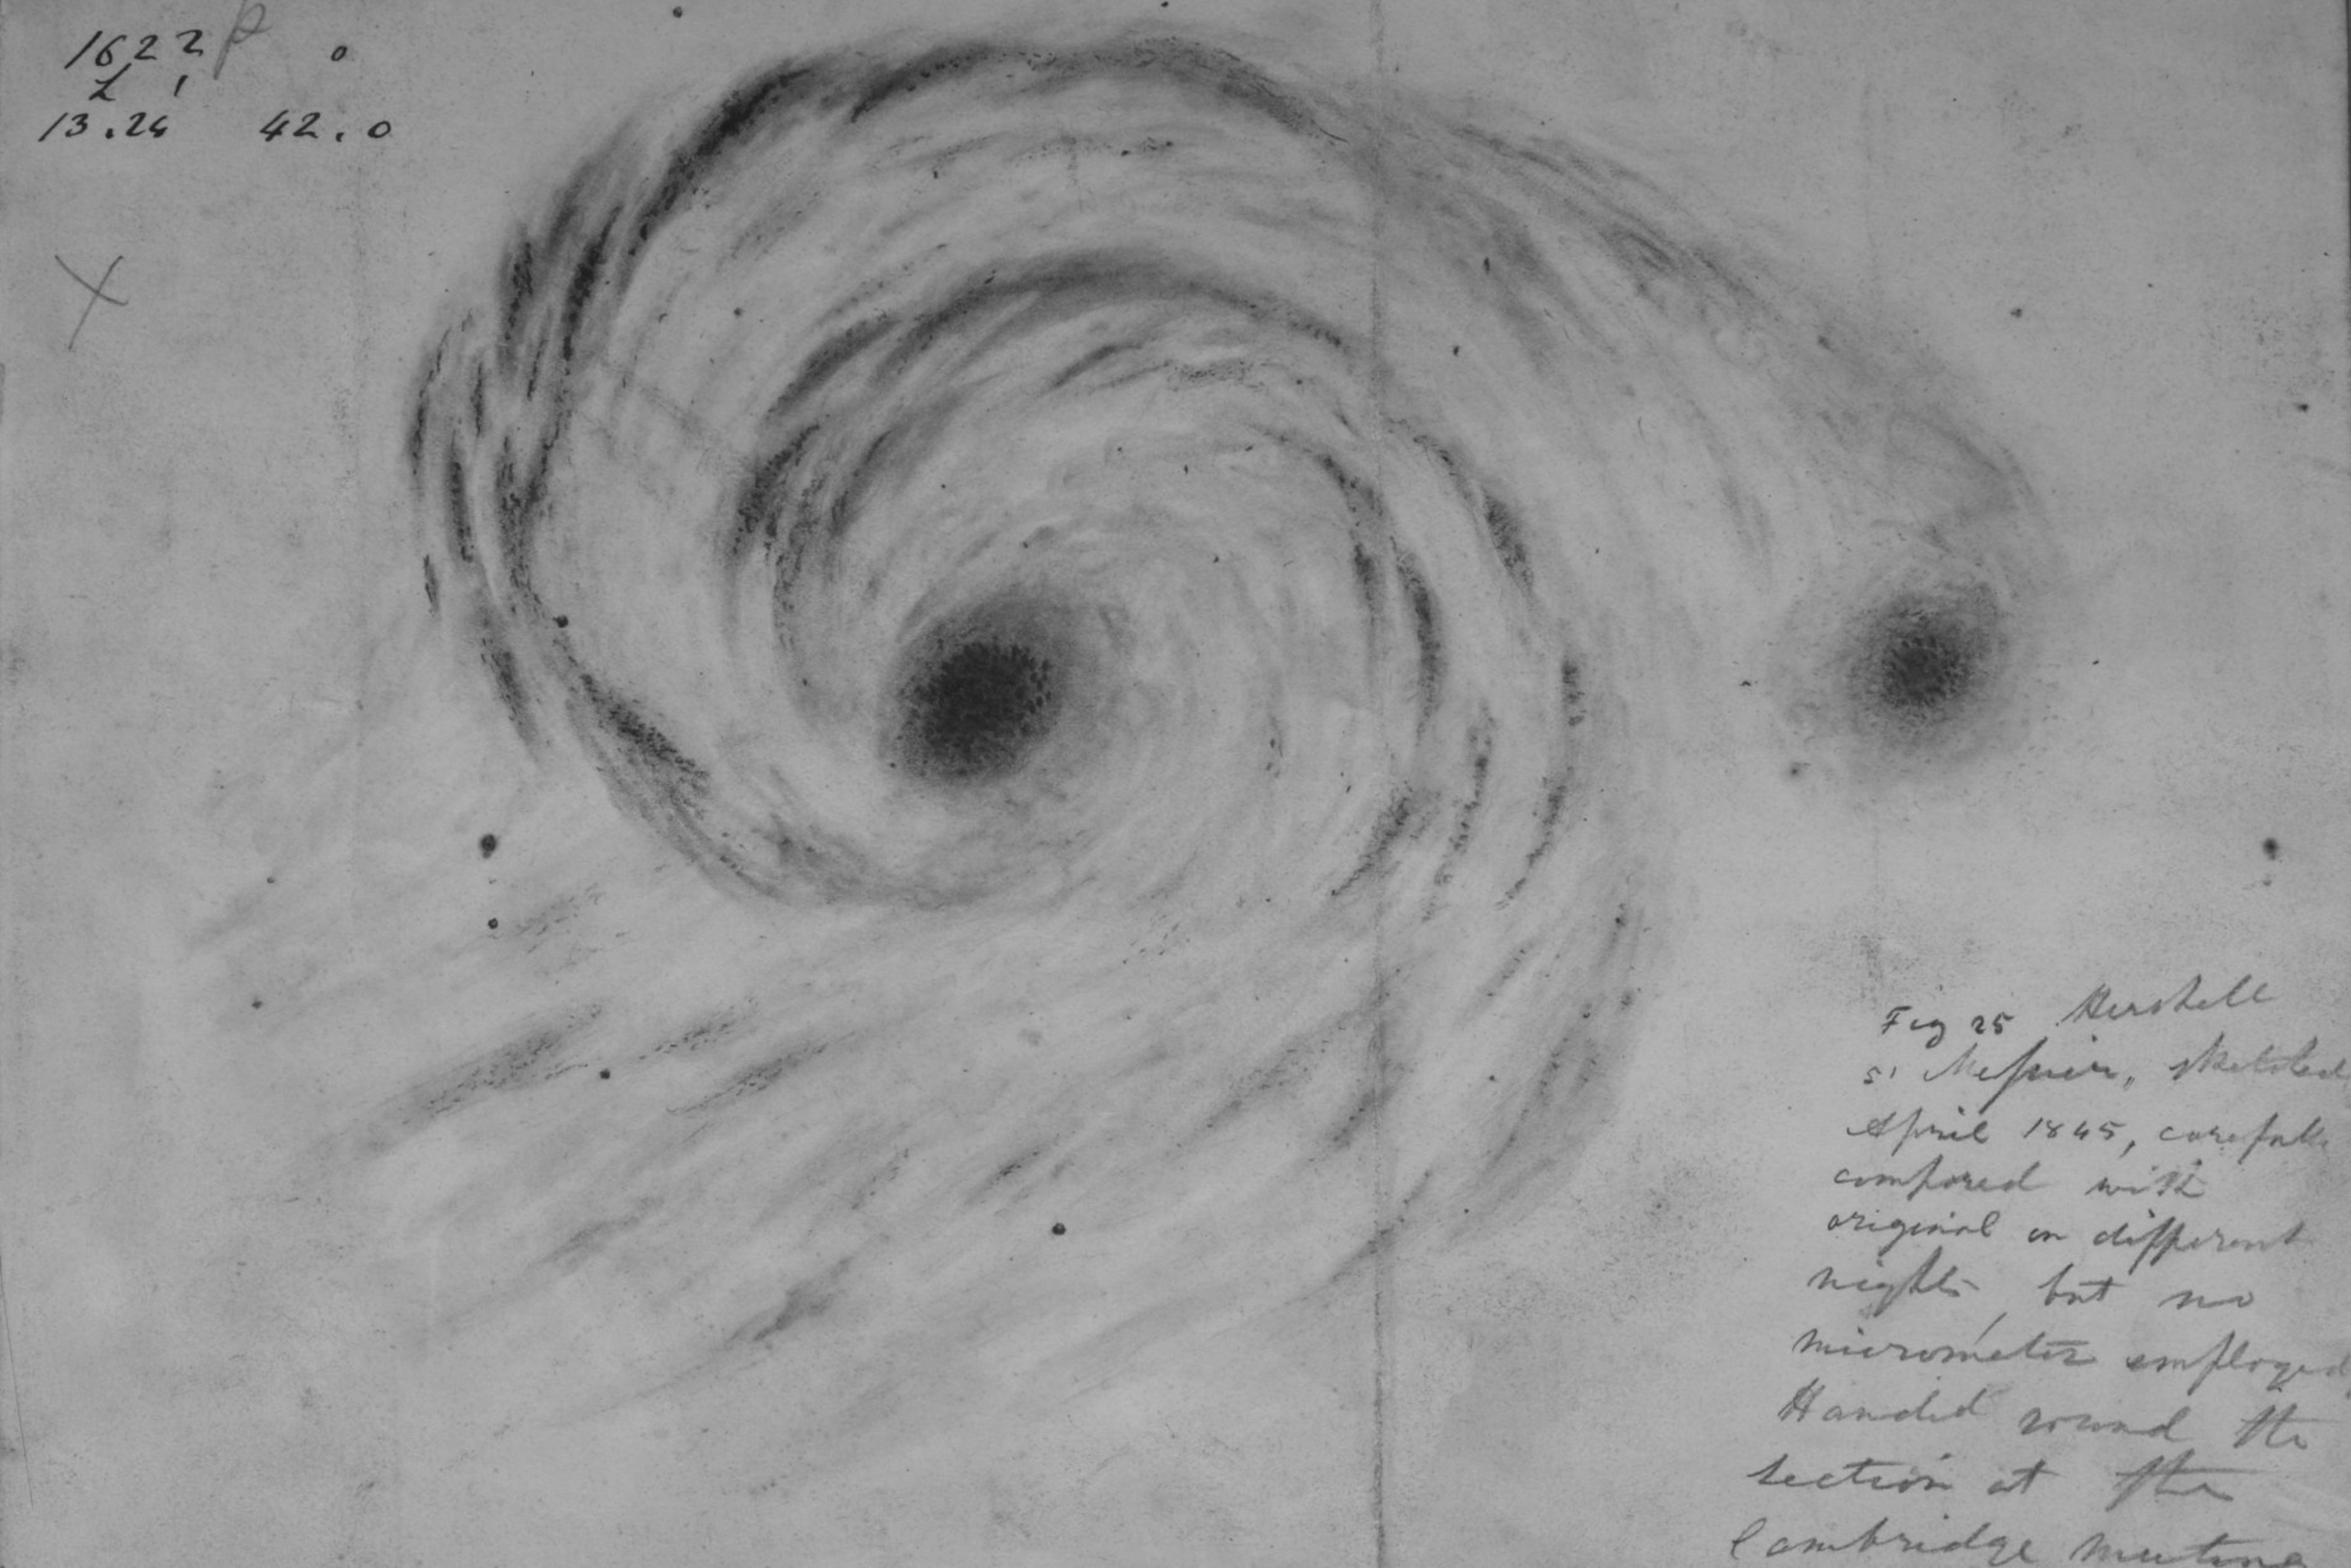 1622
13.24 42.0
Fig 25 Herschell
51 Messier, sketched
April 1845, carefully
compared with
original on different
nights, but no
micrometer employed
Handed round the
section at the
Cambridge meeting